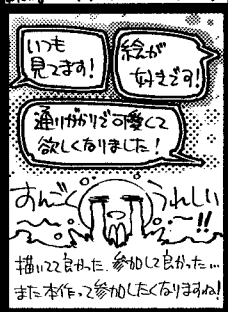 いつも
見てます!
絵が
好きです!
通りがかりで可愛くて
欲しくなりました!
すんごく
うれしい
〜!!
描いてて良かった、参加して良かった…
また本作って参加したくなりますね!